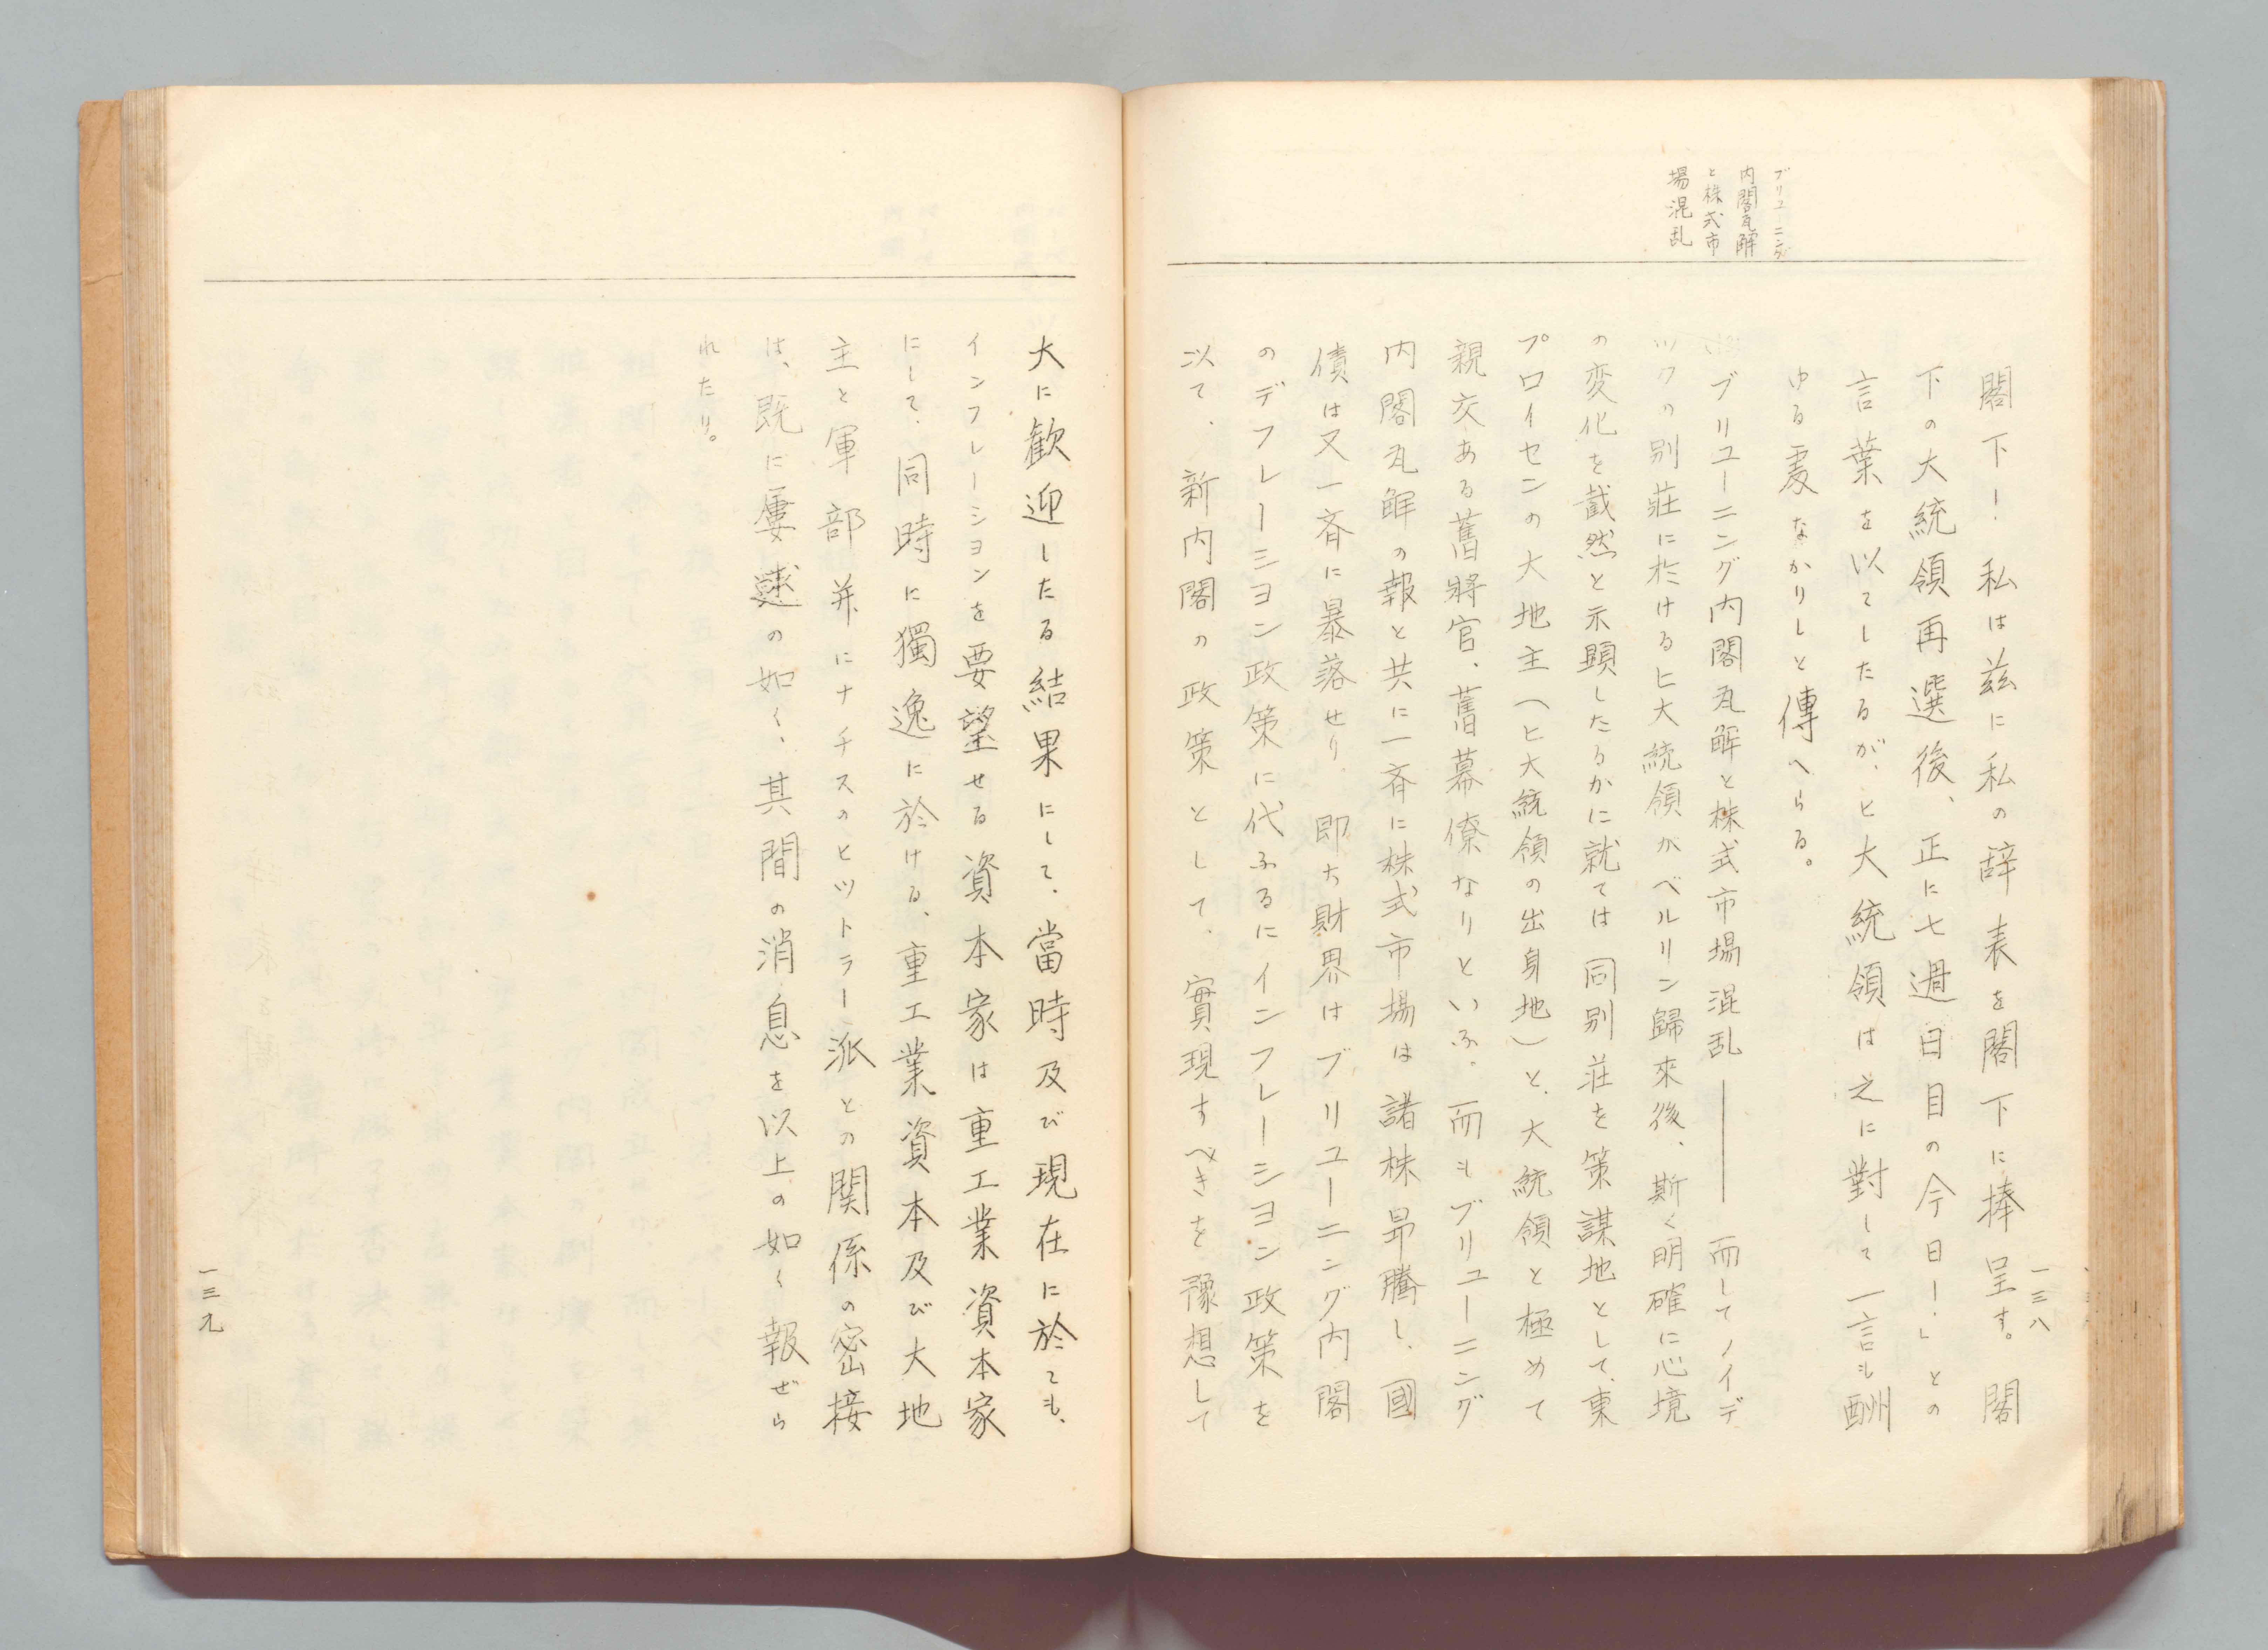 ブリユーニング
内閣瓦解
と株式市
場混乱
閣下！私は茲に私の辞表を閣下に捧呈す。閣
下の大統領再選後、正に七週日目の今日！」との
言葉を以てしたるが、ヒ大統領は之に對して一言も酬
ゆる処なかりしと傳へらる。
ブリユーニング内閣瓦解と株式市場混乱――而してノイデ
ツクの別莊に於けるヒ大統領がベルリン歸來後、斯く明確に心境
の変化を截然と示顕したるかに就ては同別莊を策謀地として、東
プロイセンの大地主（ヒ大統領の出身地）と、大統領と極めて
親交ある舊將官、舊幕僚なりといふ。而もブリユーニング
内閣瓦解の報と共に一斉に株式市場は諸株昂騰し、國
債は又一斉に暴落せり。即ち財界はブリユーニング内閣
のデフレーシヨン政策に代ふるにインフレーシヨン政策を
以て、新内閣の政策として、實現すべきを豫想して
一三八
大に歓迎したる結果にして、當時及び現在に於ても、
インフレーシヨンを要望せる資本家は重工業資本家
にして、同時に獨逸に於ける、重工業資本及び大地
主と軍部并にナチスのヒツトラー派との関係の密接
は、既に屢述の如く、其間の消息を以上の如く報ぜら
れたり。
一三九